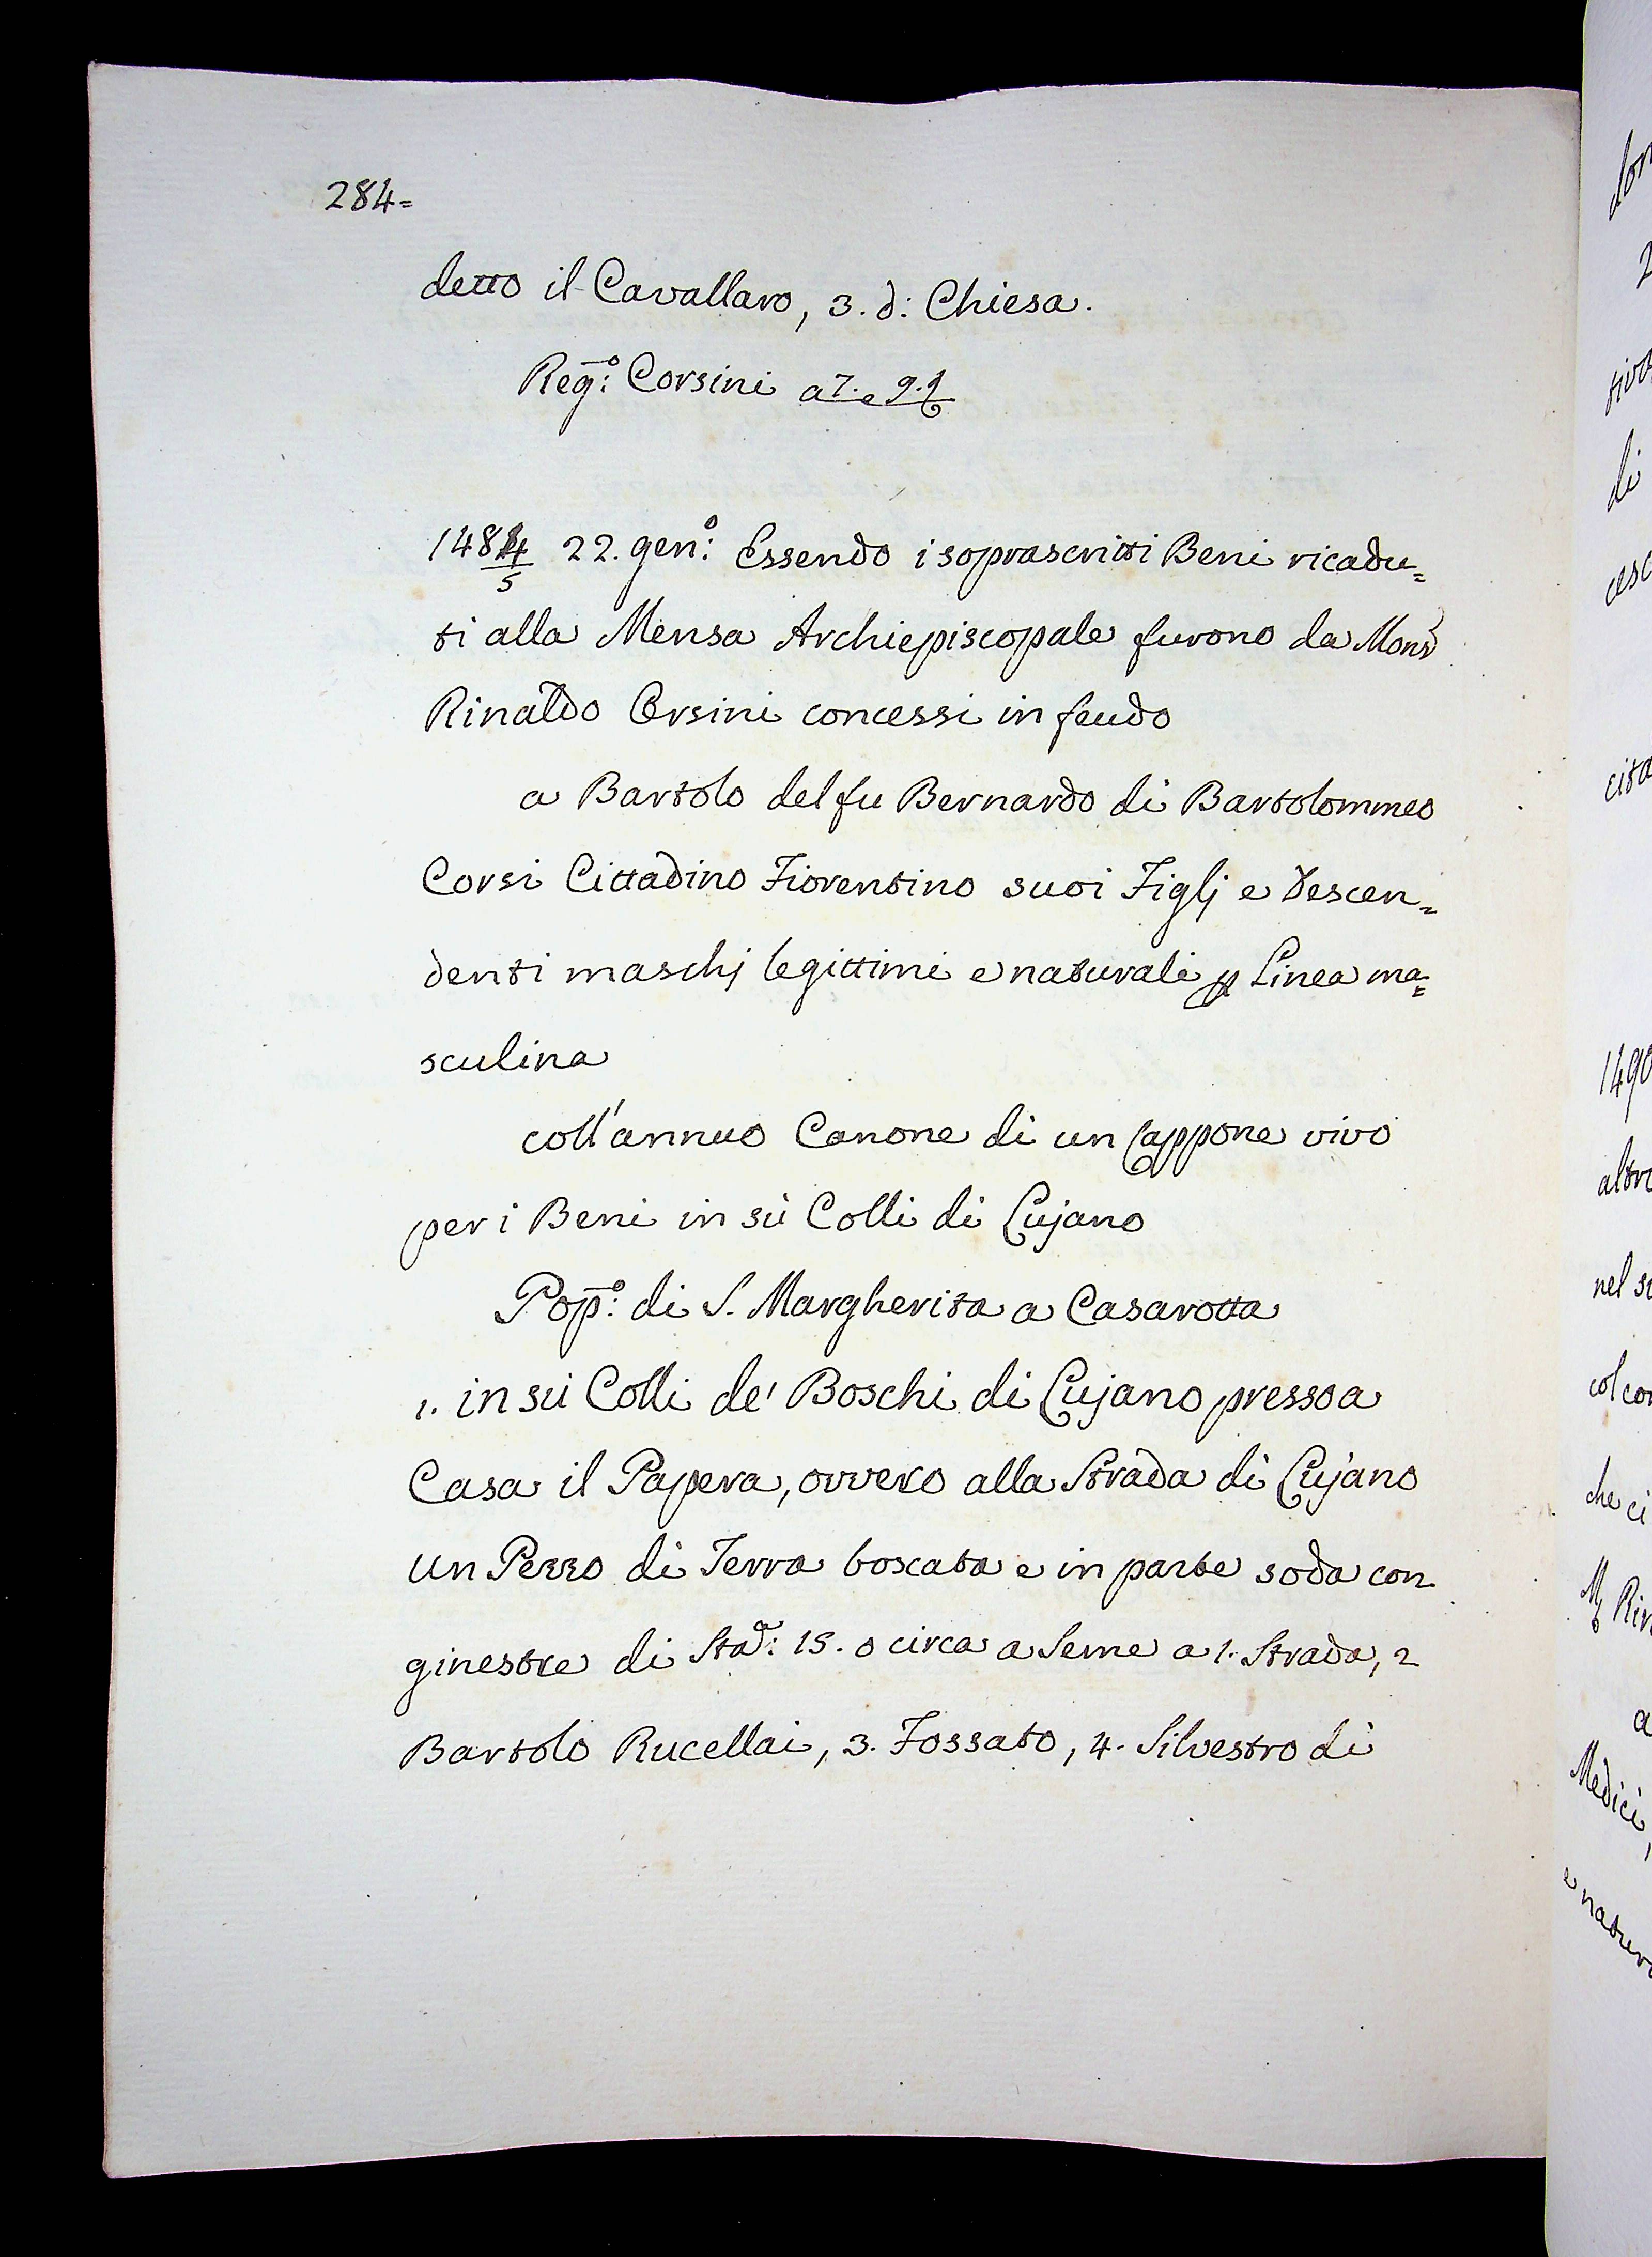 284=
detto il Cavallaro, 3. d: Chiesa.
Reg:º Corsini a 7. e 9.
1484/5 22. gen:º Essendo i soprascritti Beni ricadu=
ti alla Mensa Archiepiscopale furono da Monsr
Rinaldo Orsini concessi in feudo
a Bartolo del fu Bernardo di Bartolommeo
Corsi Cittadino Fiorentino suoi Figlj e descen=
denti maschj legittimi e naturali p Linea ma=
sculina
coll'annuo Canone di un Cappone vivo
per i Beni in sù Colli di Cujano
Pop:º di S. Margherita a Casarotta
1. in sù Colli de' Boschi di Cujano presso a
Casa il Papera, ovvero alla Strada di Cujano
un Pezzo di Terra boscata e in parte soda con
ginestre di Stad:ª 15. o circa a Seme a 1. Strada, 2
Bartolo Rucellai, 3. Fossato, 4. Silvestro di
1490
altro
nel
che ci
Medici,